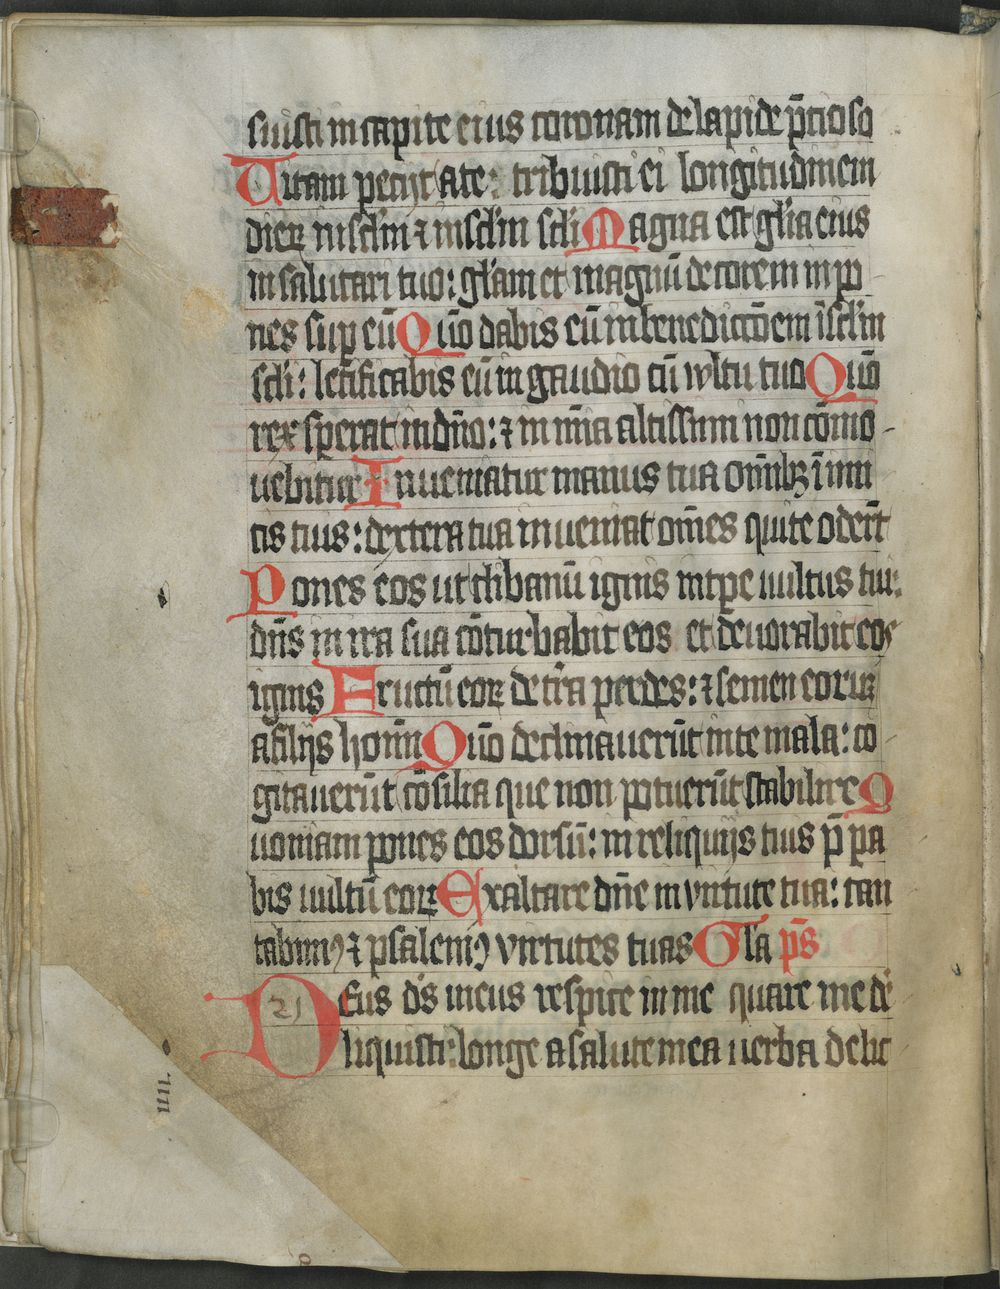 suisti in capite eius coronam de lapide p̄cioso
Vitam pecijt ate: tribuisti ei longitudinem
dieꝝ insc̄lm ⁊ insc̄lm sc̄li Magna est gl̄ia eius
in salutari tuo: gl̄iam et magnū decorem inpo
nes sup eū Qūo dabis eū inbenedicc̄oem ī sc̄lm
sc̄li: letificabis eū in gaudio cū wltu tuo Qūo
rex sperat in dn̄o: ⁊ in mīa altissimi non cōmo-
uebitur Inueniatur manus tua om̄ibꝫ īimi
cis tuis: dextera tua inueniat om̄es qui te oder̄t
Pones eos ut clibanū ignis intp̄e uultus tui:
dn̄s in ira sua cōturbabit eos et deuorabit eos
ignis Fructū eoꝝ de tr̄a perdes: ⁊ semen eoruꝝ
afilijs hoīm Qūo declinauerūt inte mala: co
gitauerūt cōsilia que non potuerūt stabilire Q
uoniam pones eos dorsū: in reliquijs tuis p̄pa
bis uultū eoꝝ Exaltare dn̄e in virtute tua: can
tabimꝰ ⁊ psalemꝰ virtutes tuas Gl̄a p̄s
21
Deus ds̄ meus respice in me quare me de
liquisti: longe asalute mea uerba delic
iiii.